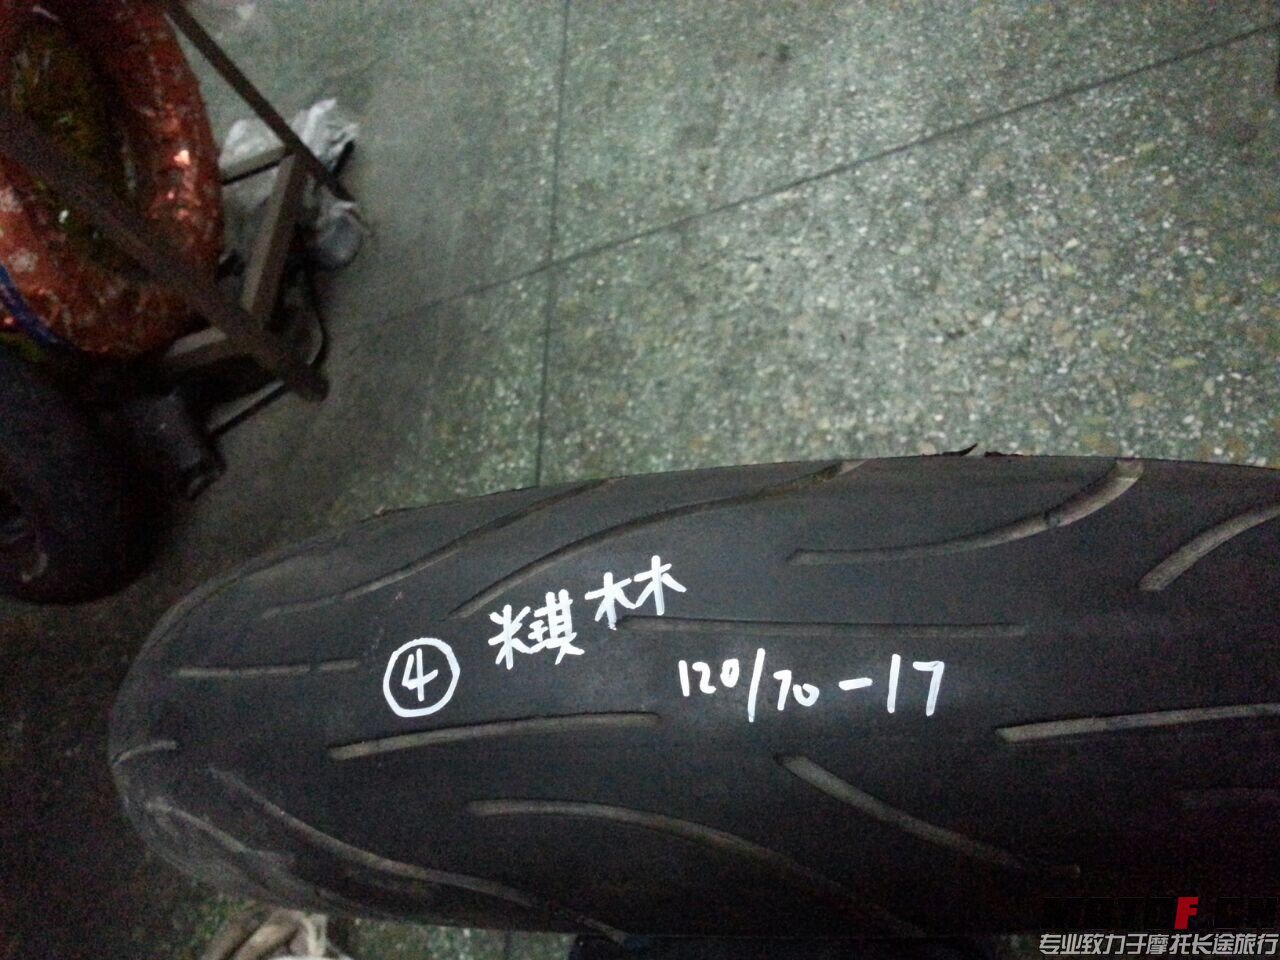 ④ 米琪林
120/70-17
MOTOF.CN
专业致力于摩托长途旅行